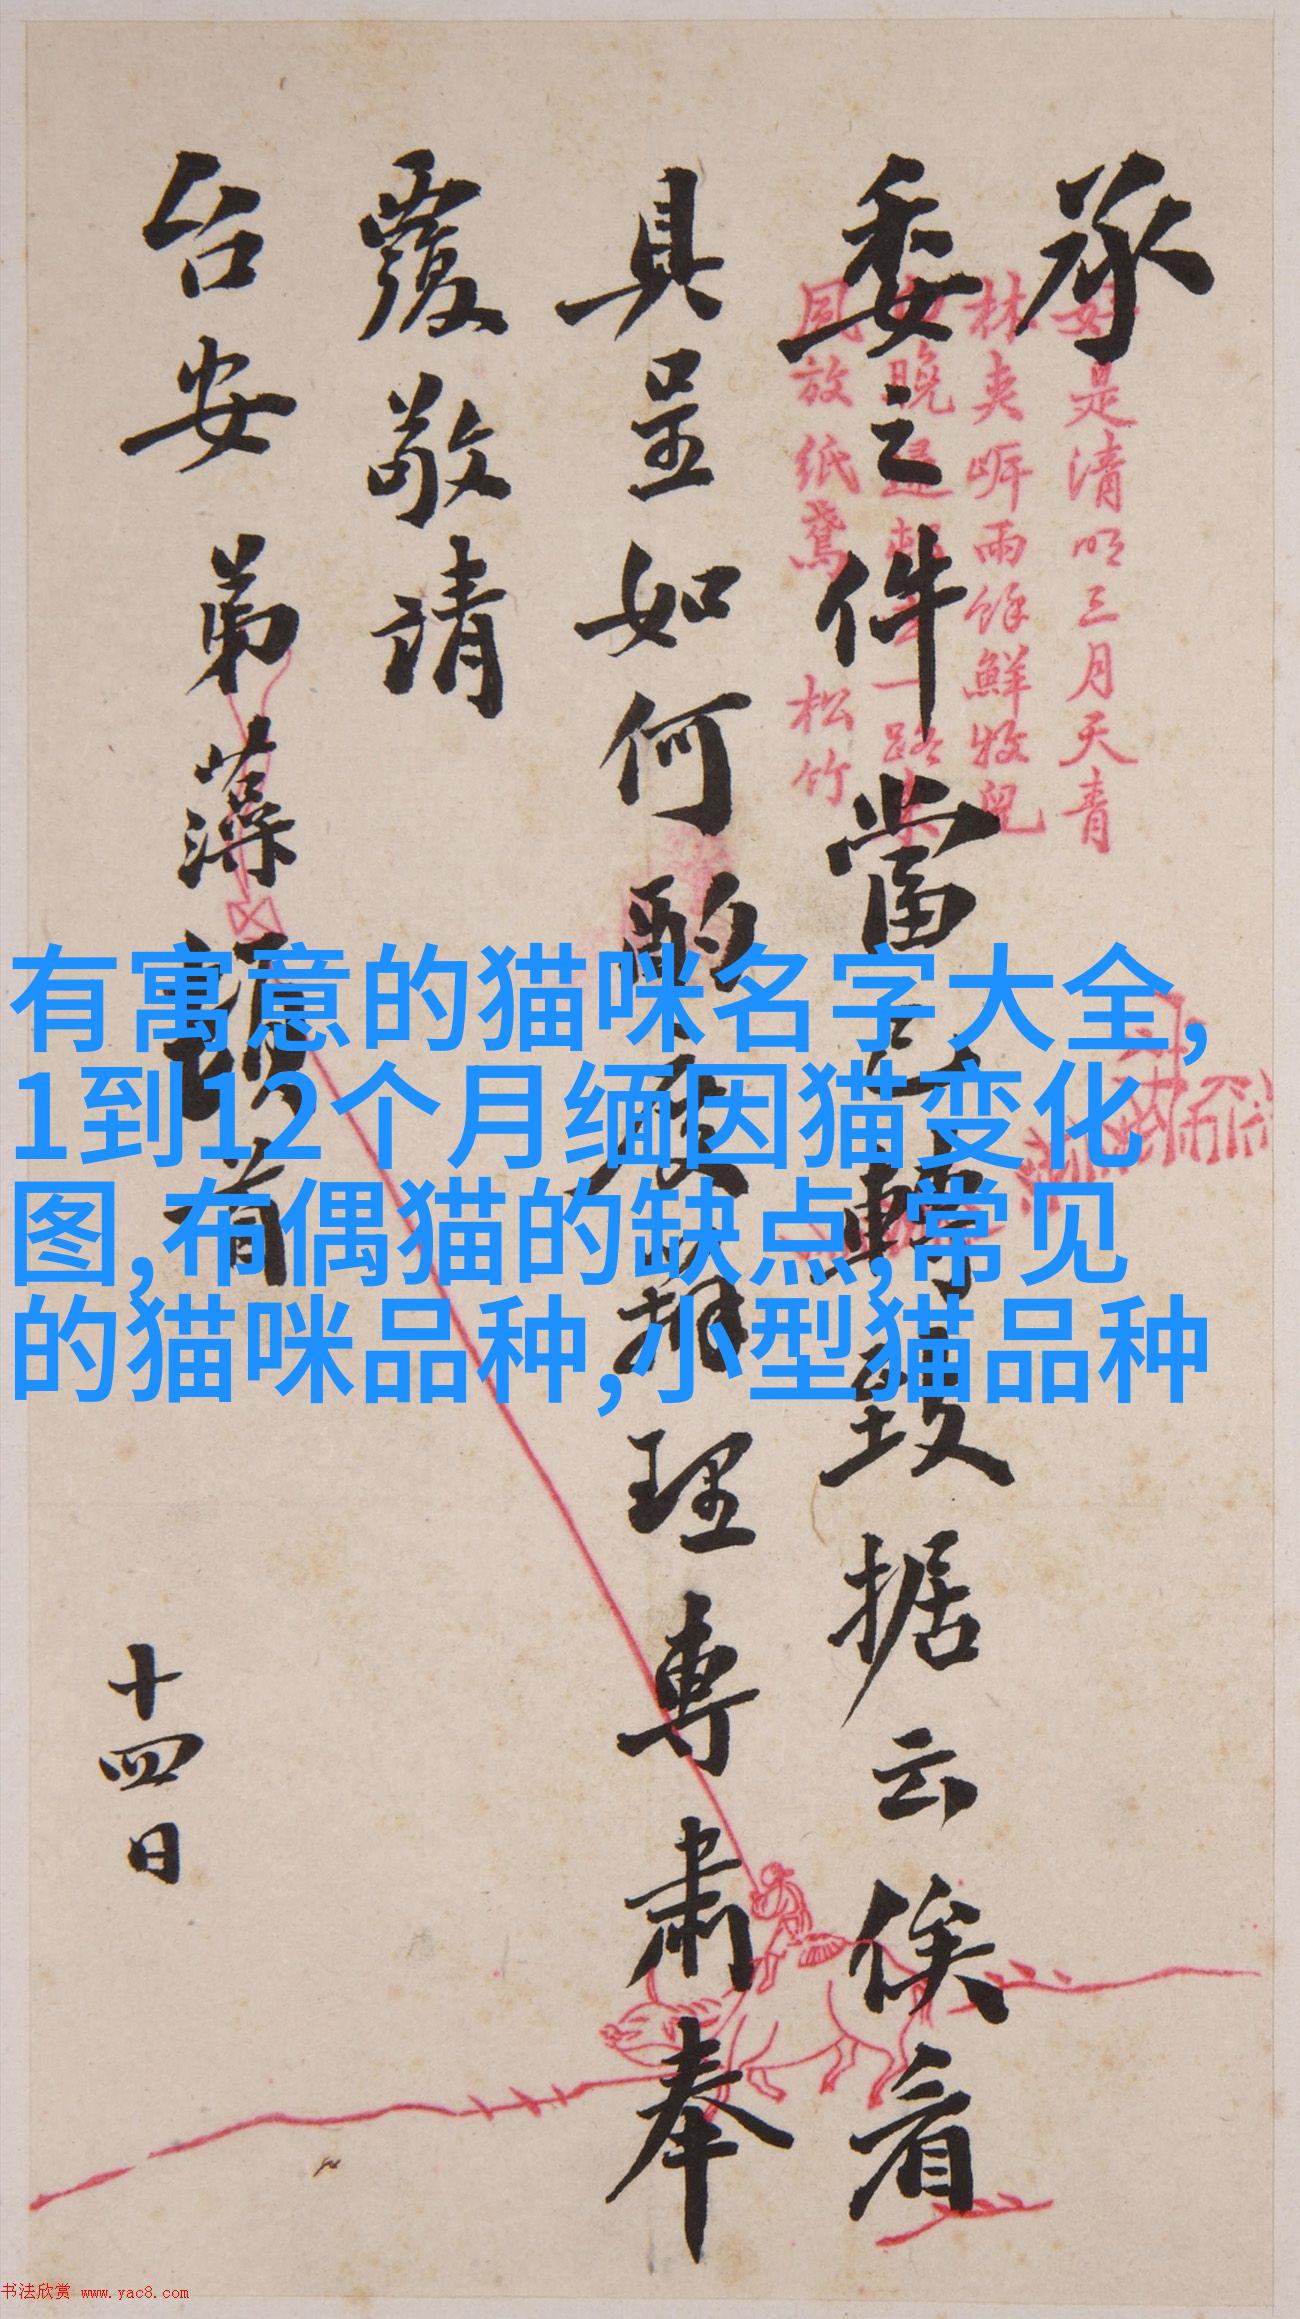 承
委之件當已轉致据云俟看
具呈如何酌度辦理專肅奉
覆敬请
台安 弟藻頓首
十四日
好是清明三月天青
林夹岍雨馀鮮牧兒
晚
同放纸鸢 松竹
有寓意的猫咪名字大全,
1到12个月缅因猫变化
图,布偶猫的缺点,常见
的猫咪品种,小型猫品种
书法欣赏 www.yac8.com